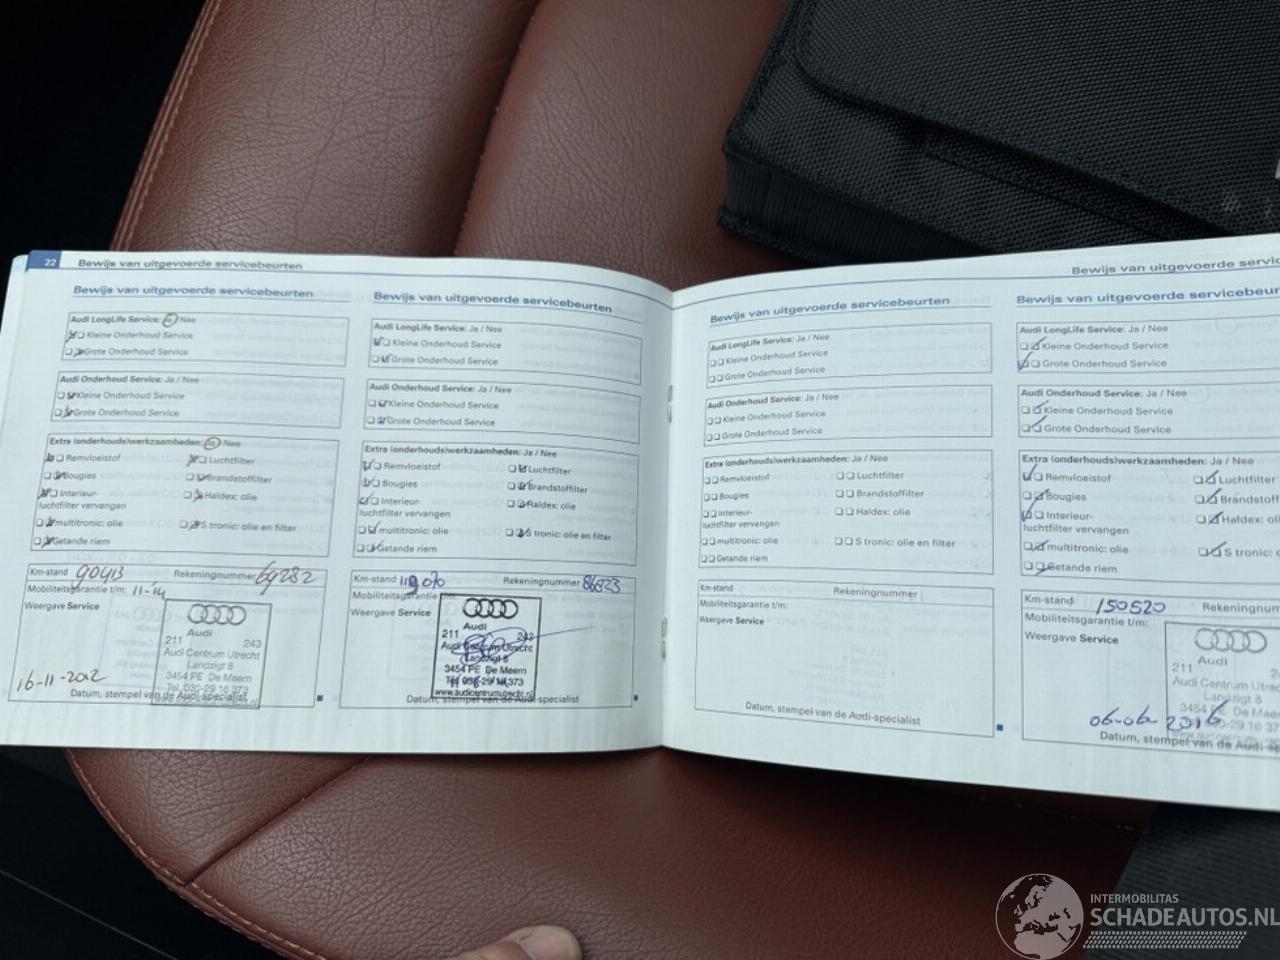 22 Bewijs van uitgevoerde servicebeurten
Bewijs van uitgevoerde servicebeurten
Audi LongLife Service: Ja Nee
Kleine Onderhoud Service
Grote Onderhoud Service
Audi Onderhoud Service: Ja / Nee
Kleine Onderhoud Service
Grote Onderhoud Service
Extra (onderhouds)werkzaamheden: Ja Nee
Remvloeistof Luchtfilter
Bougies Brandstoffilter
Interieur- Haldex: olie
luchtfilter vervangen
multitronic: olie S tronic: olie en filter
Getande riem
Km-stand 90413 Rekeningnummer 69282
Mobiliteitsgarantie t/m: 11-14
Weergave Service
Audi
211 243
Audi Centrum Utrecht
Landzigt 8
3454 PE De Meern
Tel. 030-29 16 373
16-11-2012
Datum, stempel van de Audi-specialist
Bewijs van uitgevoerde servicebeurten
Audi LongLife Service: Ja / Nee
Kleine Onderhoud Service
Grote Onderhoud Service
Audi Onderhoud Service: Ja / Nee
Kleine Onderhoud Service
Grote Onderhoud Service
Extra (onderhouds)werkzaamheden: Ja / Nee
Remvloeistof Luchtfilter
Bougies Brandstoffilter
Interieur- Haldex: olie
luchtfilter vervangen
multitronic: olie S tronic: olie en filter
Getande riem
Km-stand Rekeningnummer 86823
Mobiliteitsgarantie
Weergave Service
Audi
211 243
Audi Centrum Utrecht
Landzigt 8
3454 PE De Meern
Tel. 030-29 16 373
www.audicentrumutrecht.nl
Datum, stempel van de Audi-specialist
Bewijs van uitgevoerde servicebeurten
Audi LongLife Service: Ja / Nee
Kleine Onderhoud Service
Grote Onderhoud Service
Audi Onderhoud Service: Ja / Nee
Kleine Onderhoud Service
Grote Onderhoud Service
Extra (onderhouds)werkzaamheden: Ja / Nee
Remvloeistof Luchtfilter
Bougies Brandstoffilter
Interieur- Haldex: olie
luchtfilter vervangen
multitronic: olie S tronic: olie en filter
Getande riem
Km-stand Rekeningnummer
Mobiliteitsgarantie t/m:
Weergave Service
Datum, stempel van de Audi-specialist
Bewijs van uitgevoerde servic
Bewijs van uitgevoerde servicebeur
Audi LongLife Service: Ja / Nee
Kleine Onderhoud Service
Grote Onderhoud Service
Audi Onderhoud Service: Ja / Nee
Kleine Onderhoud Service
Grote Onderhoud Service
Extra (onderhouds)werkzaamheden: Ja / Nee
Remvloeistof Luchtfilter
Bougies Brandstoff
Interieur- Haldex: olie
luchtfilter vervangen
multitronic: olie S tronic: o
Getande riem
Km-stand 150520 Rekeningnum
Mobiliteitsgarantie t/m:
Weergave Service
Audi
211
Audi Centrum Utrec
Landzigt 8
3454 PE De Meern
06-06-2016
Datum, stempel van de Audi-sp
INTERMOBILITAS
SCHADEAUTOS.NL